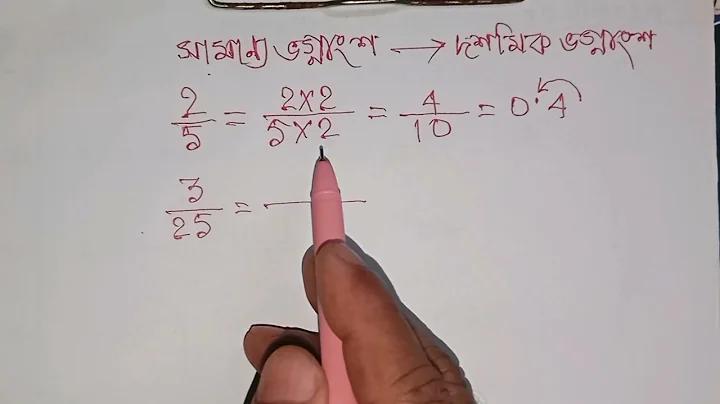 সামান্য ভগ্নাংশ → দশমিক ভগ্নাংশ
2/5 = 2×2/5×2 = 4/10 = 0.4
3/25 =